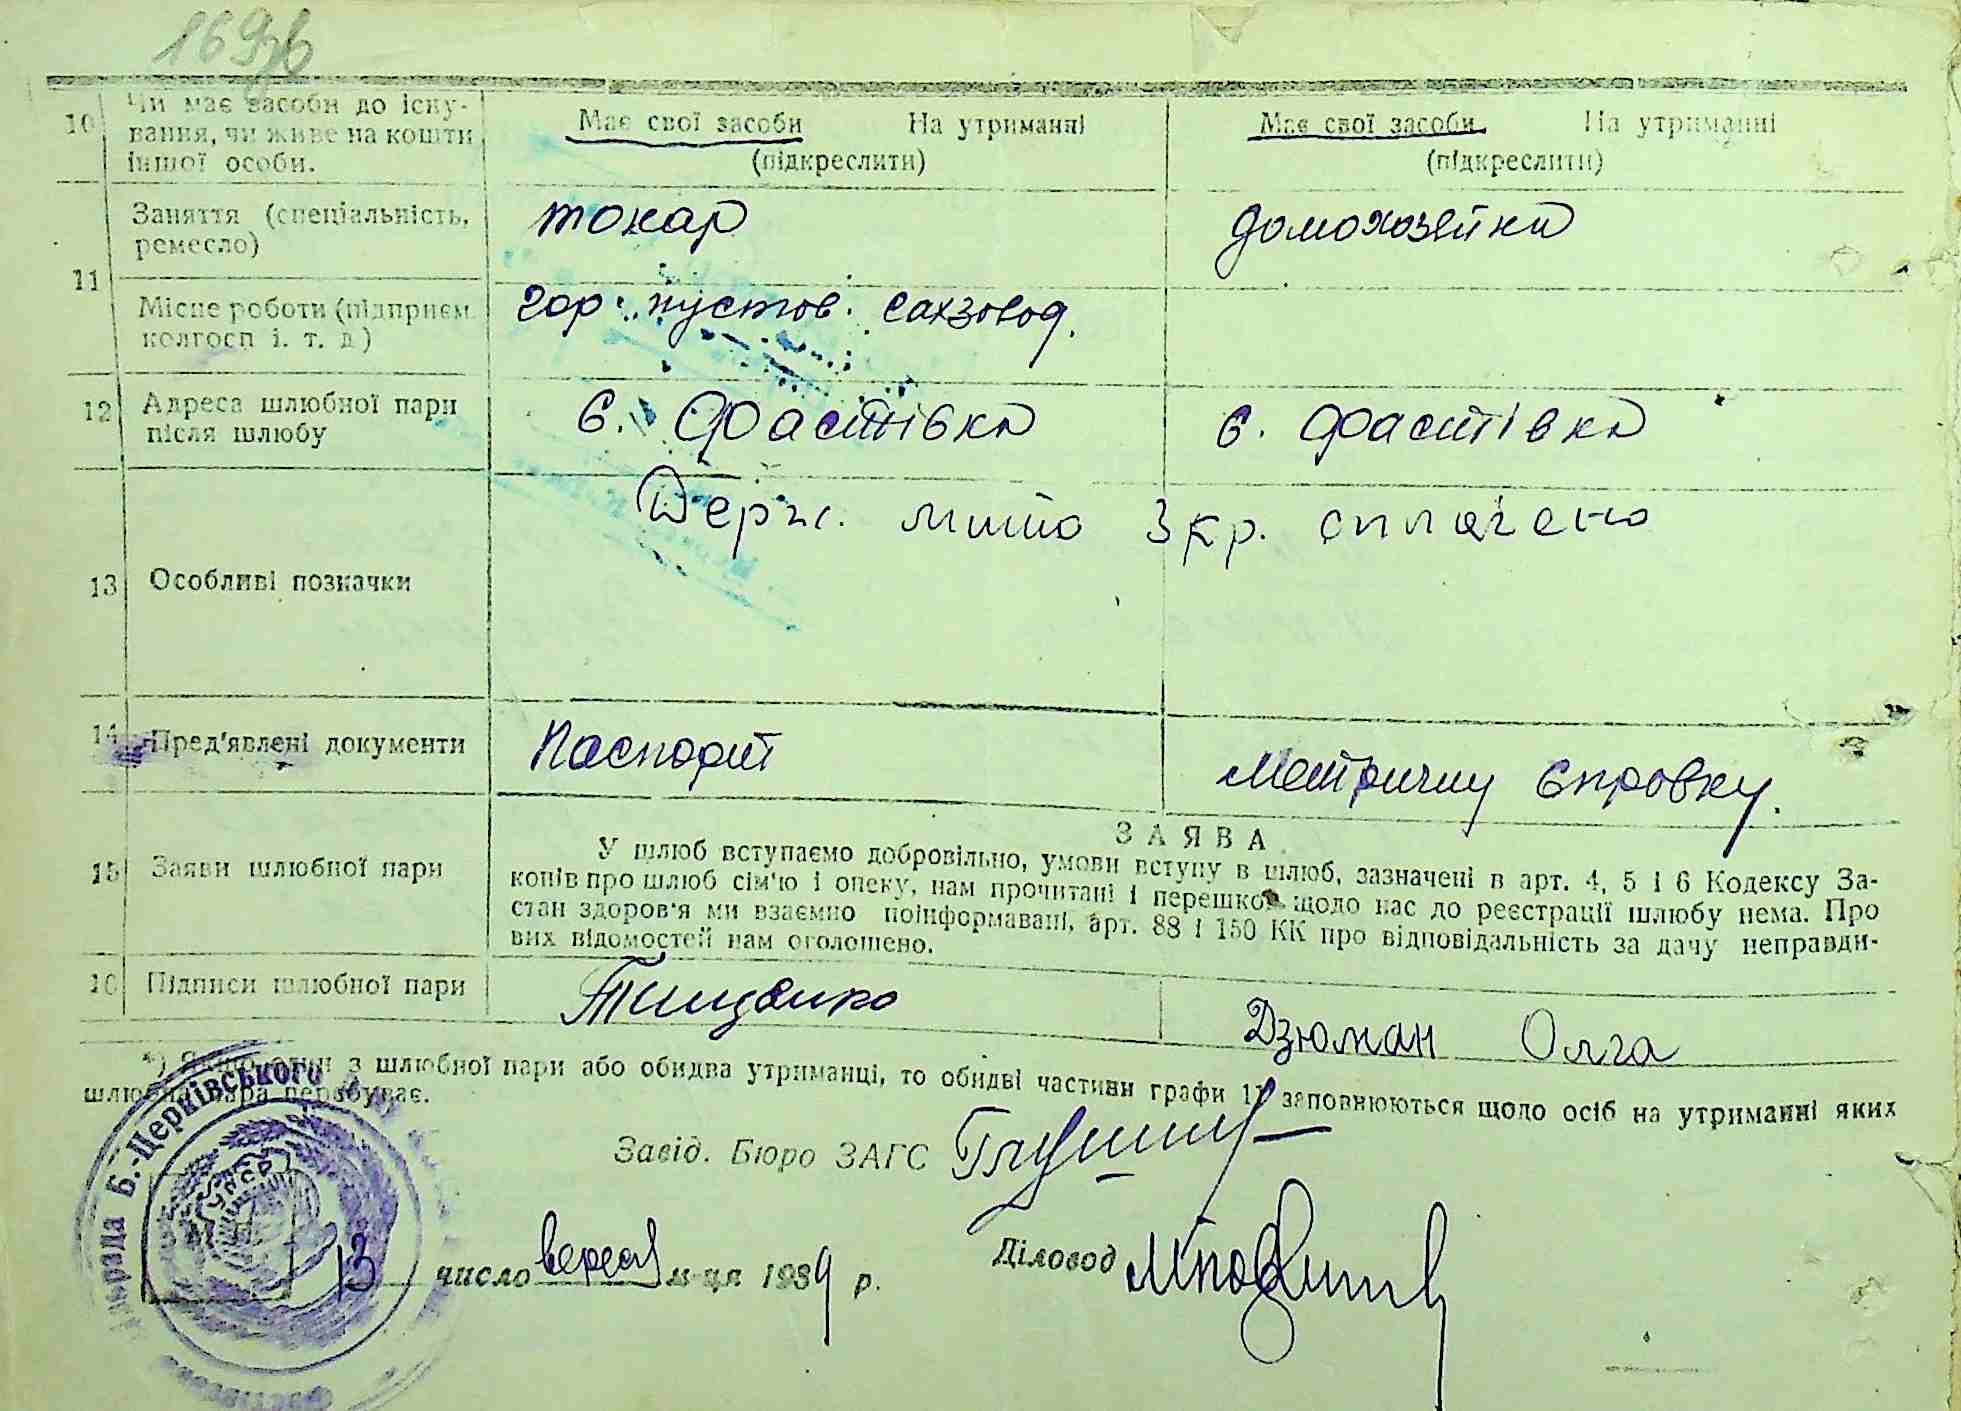 169зв
10 Чи має засоби до існу-
вання, чи живе на кошти
іншої особи.
Має свої засоби На утриманні
(підкреслити)
Має свої засоби На утриманні
(підкреслити)
11 Заняття (спеціальність,
ремесло)
токар
домохозейка
Місце роботи (підприєм.
колгосп і. т. д)
гор. пустов. сахзовод.
12 Адреса шлюбної пари
після шлюбу
с. Фастівка
с. Фастівка
13 Особливі позначки
Держ. мито 3 кр. сплачено
14 Пред'явлені документи
Паспорт
Метричну справку.
15 Заяви шлюбної пари
ЗАЯВА
У шлюб вступаємо добровільно, умови вступу в шлюб, зазначені в арт. 4, 5 і 6 Кодексу За-
копів про шлюб сім'ю і опеку, нам прочитані і перешкод щодо нас до реєстрації шлюбу нема. Про
стан здоров'я ми взаємно поінформавані, арт. 88 і 150 КК про відповідальність за дачу неправди-
вих відомостей нам оголошено.
16 Підписи шлюбної пари
Тищенко
Дзюман Олга
*) Якщо один з шлюбної пари або обидва утриманці, то обидві частини графи 11 заповнюються щодо осіб на утриманні яких
шлюбна пара перебуває.
Завід. Бюро ЗАГС
13 число вересня м-ця 1939 р.
Діловод
Б.-Церківського
УРСР